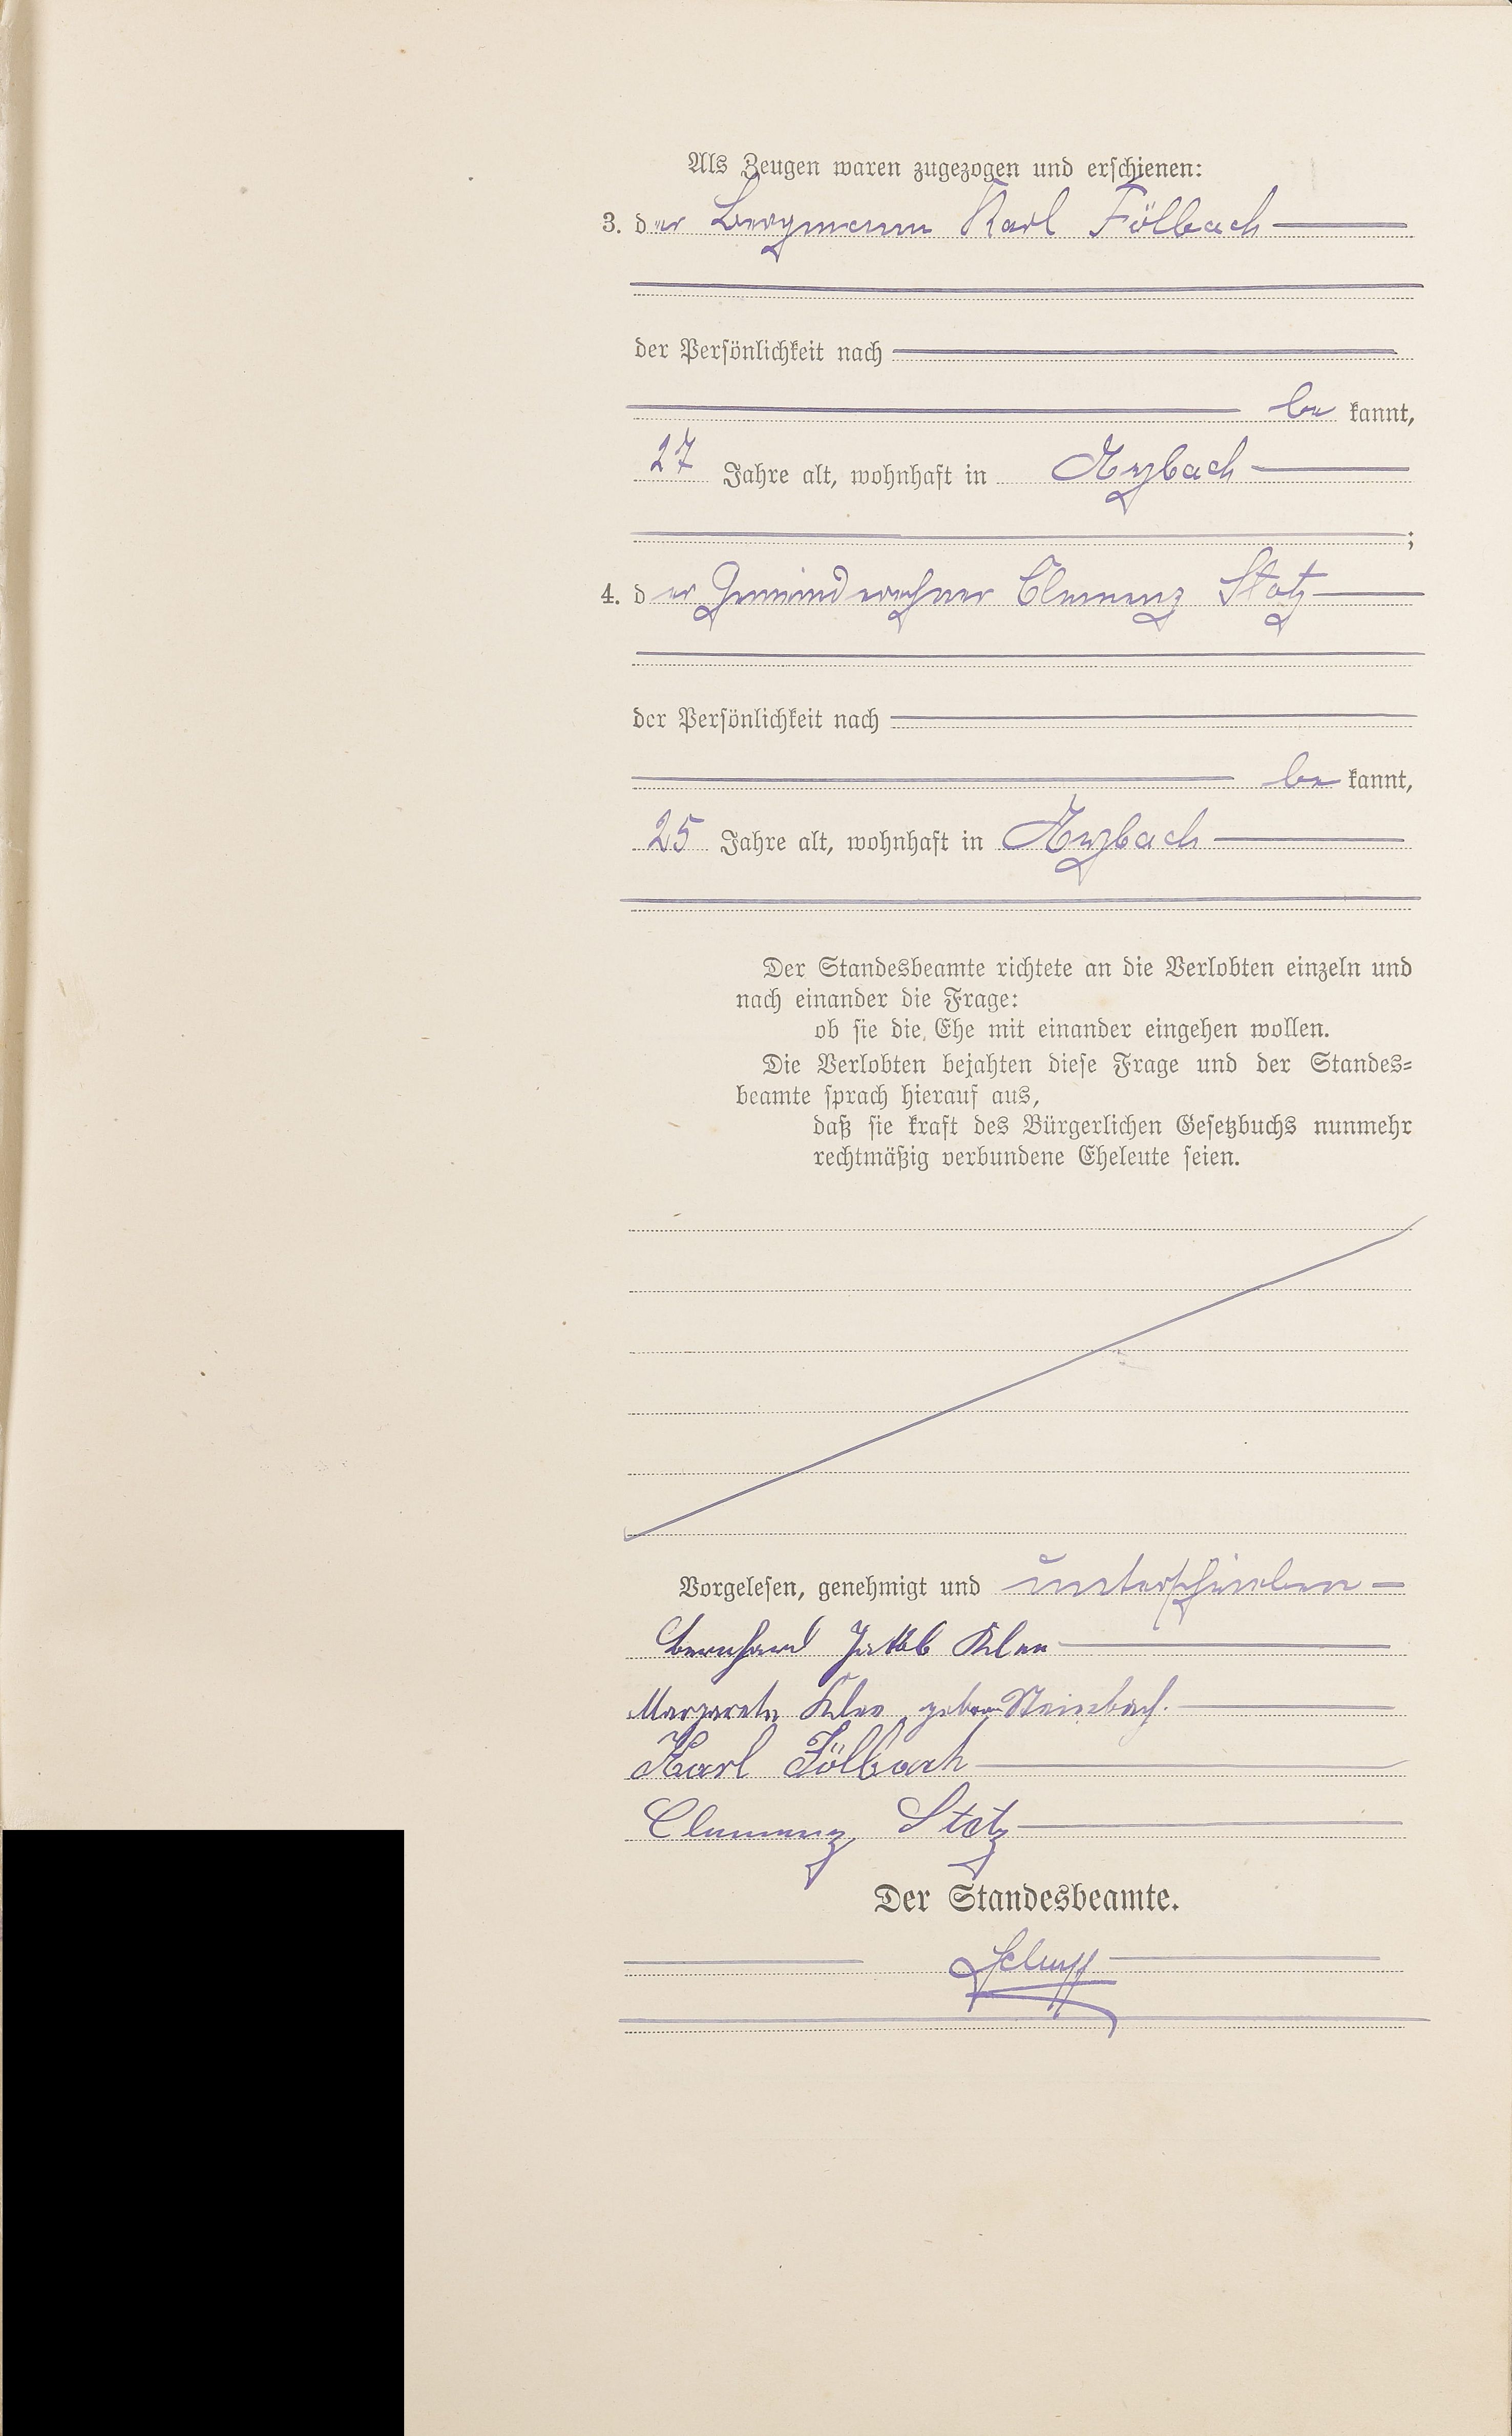 Als Zeugen waren zugezogen und erschienen:
3. der Bergmann Karl Fölbach
der Persönlichkeit nach
be kannt,
27 Jahre alt, wohnhaft in Arzbach
;
4. der Gemeinderechner Clemenz Stotz
der Persönlichkeit nach
be kannt,
25 Jahre alt, wohnhaft in Arzbach
Der Standesbeamte richtete an die Verlobten einzeln und
nach einander die Frage:
ob sie die Ehe mit einander eingehen wollen.
Die Verlobten bejahten diese Frage und der Standes=
beamte sprach hierauf aus,
daß sie kraft des Bürgerlichen Gesetzbuchs nunmehr
rechtmäßig verbundene Eheleute seien.
Vorgelesen, genehmigt und unterschrieben
Bernhard Jakob Klee
Margareta Klee geborene Steinebach.
Karl Fölbach
Clemenz Stotz
Der Standesbeamte.